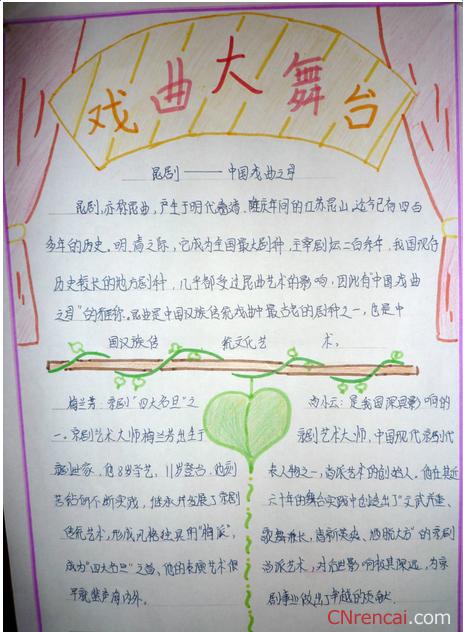 戏曲大舞台
昆剧——中国戏曲之母
昆剧,亦称昆曲,产生于明代嘉靖、隆庆年间的江苏昆山,迄今已有四百
多年的历史。明、清之际,它成为全国最大剧种,主宰剧坛二百余年,我国现存
历史较长的地方剧种,几乎都受过昆曲艺术的影响,因此有"中国戏曲
之母"的雅称。昆曲是中国汉族传统戏曲中最古老的剧种之一,也是中
国汉族传统文化艺术。
梅兰芳:京剧"四大名旦"之
一。京剧艺术大师梅兰芳出生于
京剧世家,他8岁学艺,11岁登台,他刻
苦钻研不断实践,继承并发展了京剧
传统艺术,形成风格独具的"梅派",
成为"四大名旦"之首,他的表演艺术很
早就蜚声海内外。
尚小云:是我国深具影响的
京剧艺术大师,中国现代京剧代
表人物之一,尚派艺术的创始人。他在其近
六十年的舞台实践中创造出了"文武并重、
歌舞兼长、清新英爽、洒脱大方"的京剧
尚派艺术,对后世影响极其深远,为京
剧事业做出了卓越的贡献
CNrencai.com